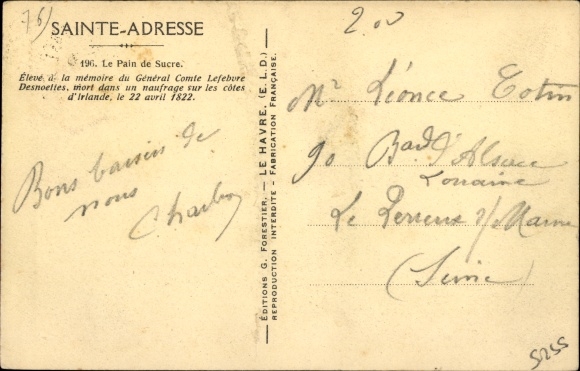 76)
SAINTE-ADRESSE
196. Le Pain de Sucre.
Élevé à la mémoire du Général Comte Lefebvre
Desnoettes, mort dans un naufrage sur les côtes
d'Irlande, le 22 avril 1822.
Bons baisers de
nous
Charles
ÉDITIONS G. FORESTIER. — LE HAVRE. (E. L. D.)
REPRODUCTION INTERDITE - FABRICATION FRANÇAISE.
2.00
Mr Léonce Cotin
90 Bard d'Alsace
Lorraine
Le Perreux s/Marne
(Seine)
5255